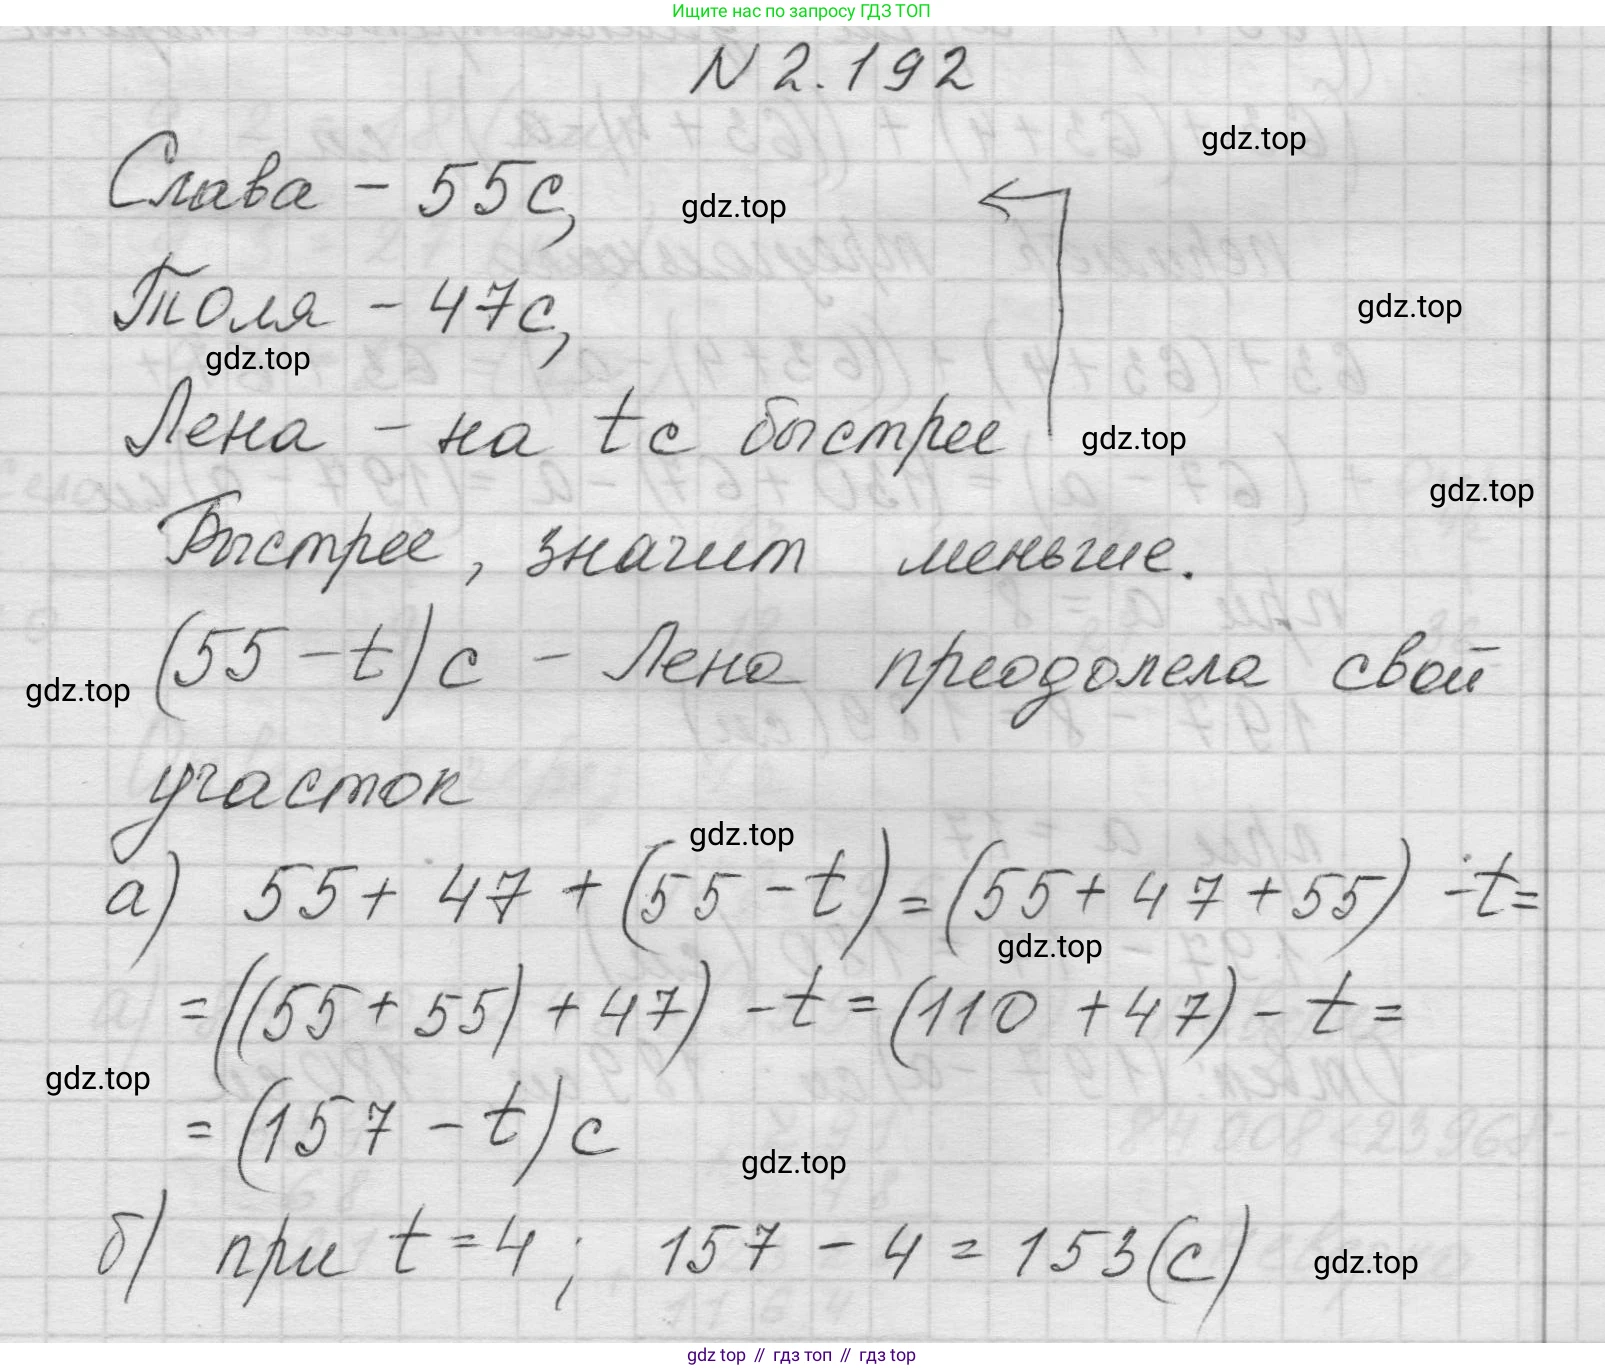 Ищите нас по запросу ГДЗ ТОП
N 2.192
gdz.top
Слава - 55с,
gdz.top
Толя - 47с,
gdz.top
gdz.top
Лена - на t с быстрее
gdz.top
gdz.top
Быстрее, значит меньше.
(55 - t) с - Лена преодолела свой
gdz.top
участок
gdz.top
а) 55 + 47 + (55 - t) = (55 + 47 + 55) - t =
gdz.top
= ((55 + 55) + 47) - t = (110 + 47) - t =
gdz.top
= (157 - t) с
gdz.top
б) при t = 4; 157 - 4 = 153 (с)
gdz.top
gdz top // гдз топ // гдз top